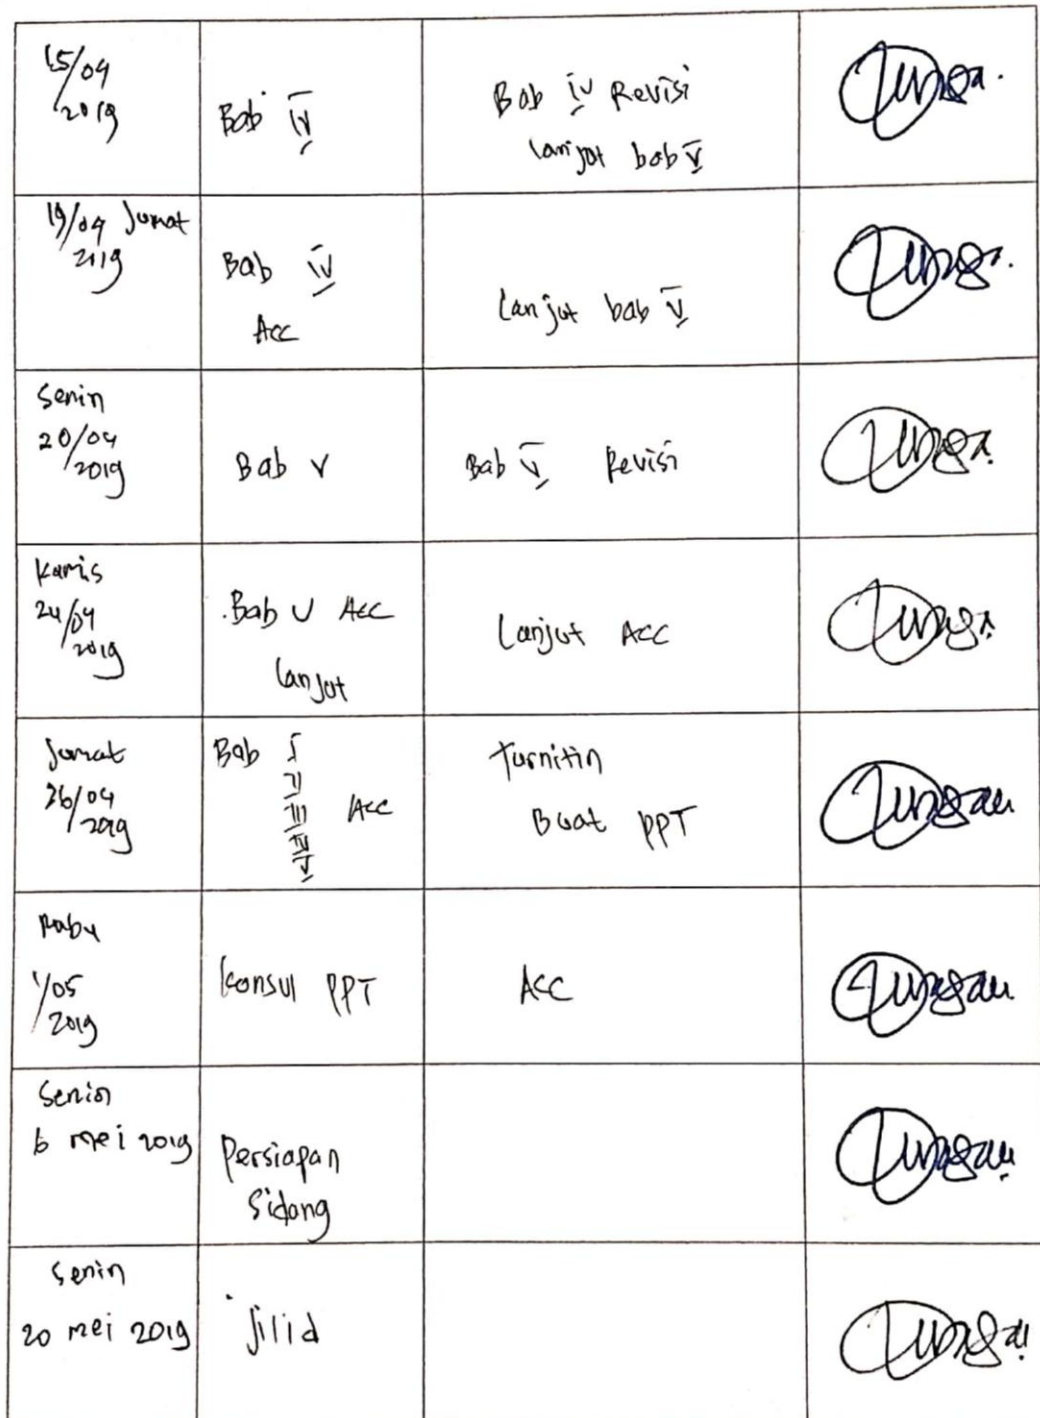 15/04
2019
Bab IV
Bab IV Revisi
lanjut bab V
19/04 Jumat
2119
Bab IV
Acc
Lanjut bab V
Senin
20/04
2019
Bab V
Bab V Revisi
Kamis
24/04
2019
Bab V Acc
lanjut
Lanjut Acc
Jumat
26/04
2019
Bab I
II
III Acc
IV
V
Turnitin
Buat PPT
Rabu
1/05
2019
Konsul PPT
Acc
Senin
6 mei 2019
Persiapan
Sidang
Senin
20 mei 2019
Jilid